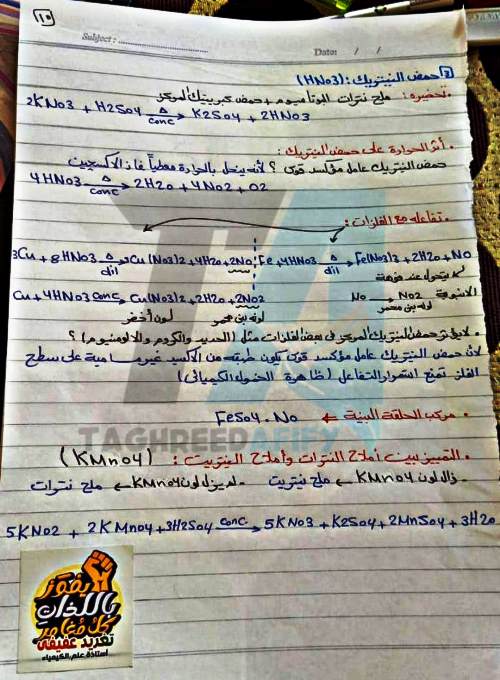 (١٠)
Subject : ....................
Date: / /
[٢] حمض النيتريك: (HNO3)
• تحضيره: ملح نترات البوتاسيوم + حمض كبريتيك المركز
2KNO3 + H2SO4 Δ conc → K2SO4 + 2HNO3
• أثر الحرارة على حمض النيتريك:
حمض النيتريك عامل مؤكسد قوى ؟ لأنه ينحل بالحرارة معطياً غاز الاكسجين
4HNO3 Δ conc → 2H2O + 4NO2 + O2
• تفاعله مع الفلزات:
3Cu + 8HNO3 Δ dil → Cu(NO3)2 + 4H2O + 2NO
Fe + 4HNO3 Δ dil → Fe(NO3)3 + 2H2O + NO
يتحول عند فوهة الانبوبة
Cu + 4HNO3 conc → Cu(NO3)2 + 2H2O + 2NO2
NO → NO2
لون أخضر لونه بني محمر
لونه بني محمر
• لا يؤثر حمض النيتريك المركز فى بعض الفلزات مثل (الحديد والكروم والالومنيوم) ؟
لان حمض النيتريك عامل مؤكسد قوى يكون طبقه من الأكسيد غير مسامية على سطح
الفلز تمنع استمرار التفاعل (ظاهرة الخمول الكيميائى)
• مركب الحلقة البنية ← FeSO4.NO
TAGHREED AFIFY
• التمييز بين أملاح النترات وأملاح النيتريت: (KMnO4)
- زال لون KMnO4 ← ملح نيتريت - لم يزل لون KMnO4 ← ملح نترات
5KNO2 + 2KMnO4 + 3H2SO4 conc. → 5KNO3 + K2SO4 + 2MnSO4 + 3H2O
يفوز
باللذات
كل مغامر
تغريد عفيفى
أستاذة علم الكيمياء